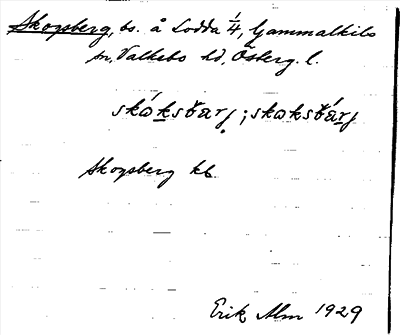 Skogsberg, bs. å Lodda 1/4, Gammalkils
sn, Valkebo hd, Österg. l.
skɷ́ksbarj; skɷksbárj
Skogsberg kb.
Erik Alm 1929